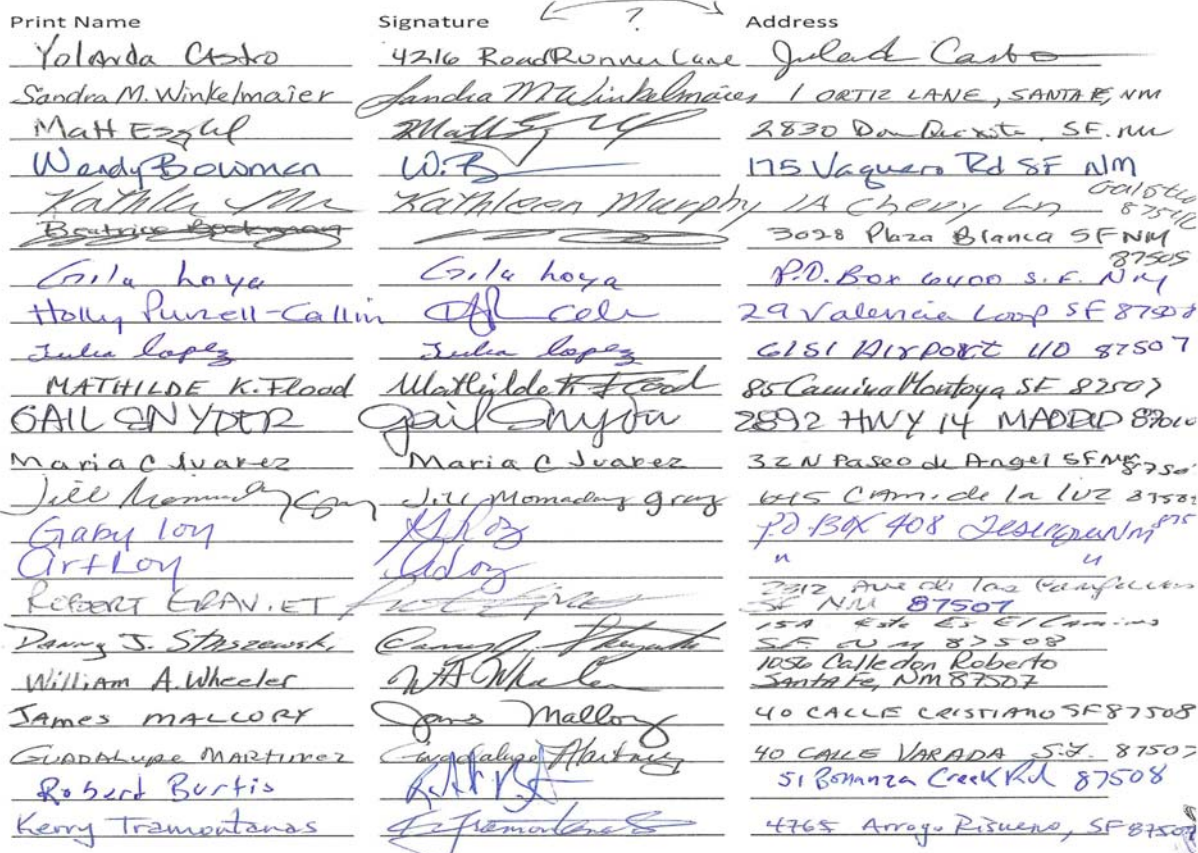 Print Name Signature ? Address
Yolanda Castro 4216 RoadRunner Lane Castro
Sandra M. Winkelmaier Sandra M. Winkelmaier 1 ORTIZ LANE, SANTA FE, NM
Matt 2830 Don SF. NM
Wendy Bowman W. B 175 Vaquero Rd SF NM
Kathleen Murphy 1A Cherry Ln Galisteo
Beatrice 3028 Plaza Blanca SF NM 87505
Gila hoya Gila hoya P.O. Box 6400 S.F. NM
Holly Purzell-Callin 29 Valencia Loop SF 87508
Julia lopez Julia lopez 6151 Airport 110 87507
MATHILDE K. Flood Mathilde K Flood 85 Camino Montoya SF 87507
GAIL SNYDER Gail Snyder 2892 HWY 14 MADRID 87010
Maria C Juarez Maria C Juarez 32 N Paseo de Angel SF NM
Jill Momaday Gray Jill Momaday gray Cam. de la luz
Gaby loy P.O. BOX 408 Tesuque NM 875
Art Loy " "
ROBERT Ave de las
SF NM 87507
DANNY J. Staszewski 15A Este Es El Camino
SF NM 87508
William A. Wheeler WA Wheeler 1056 Calle don Roberto
Santa Fe, NM 87507
JAMES MALLORY James Mallory 40 CALLE CRISTIANO SF 87508
GUADALUPE MARTINEZ Guadalupe Martinez 40 CALLE VARADA S.F. 87507
Robert Burtis 51 Bonanza Creek Rd 87508
Kerry Tramontanas 4765 Arroyo Risueno, SF 87507